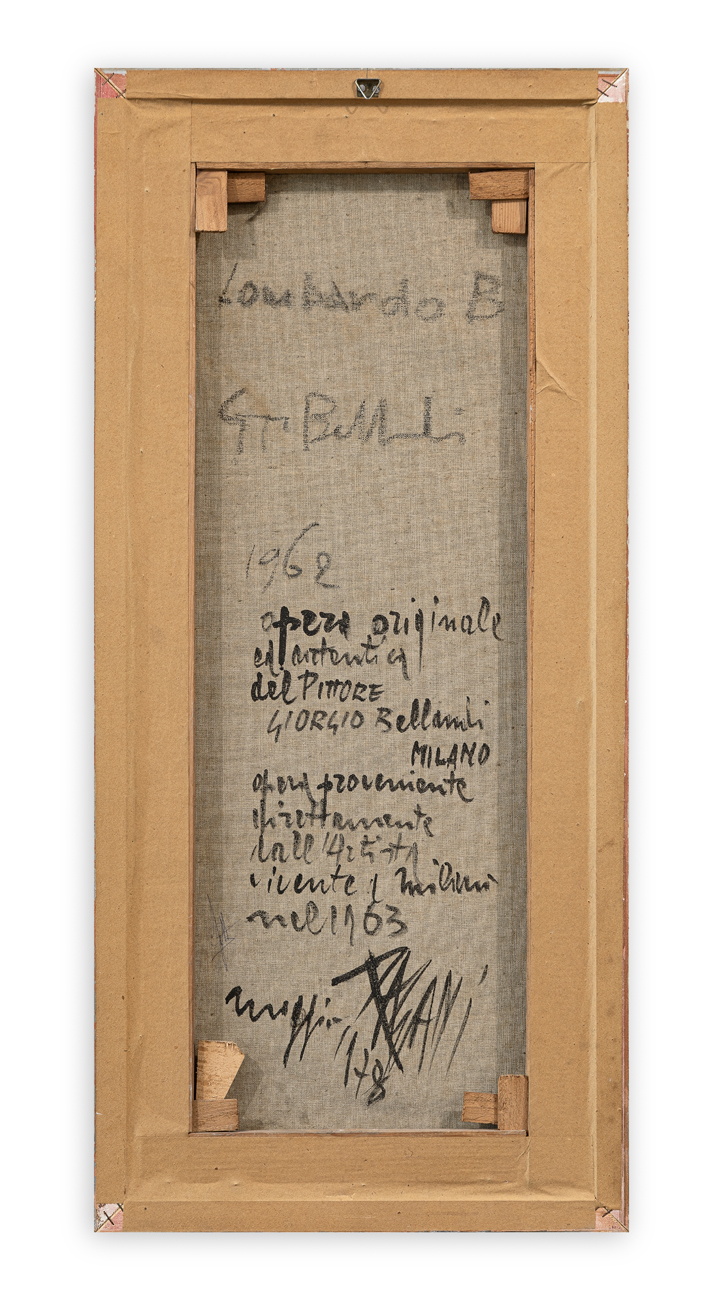 Lombardo B
G Bellandi
1962
opera originale
ed autentica
del PITTORE
GIORGIO Bellandi
MILANO
opera proveniente
direttamente
dall'Artista
vivente a milano
nel 1963
maggio PAGANI
'78